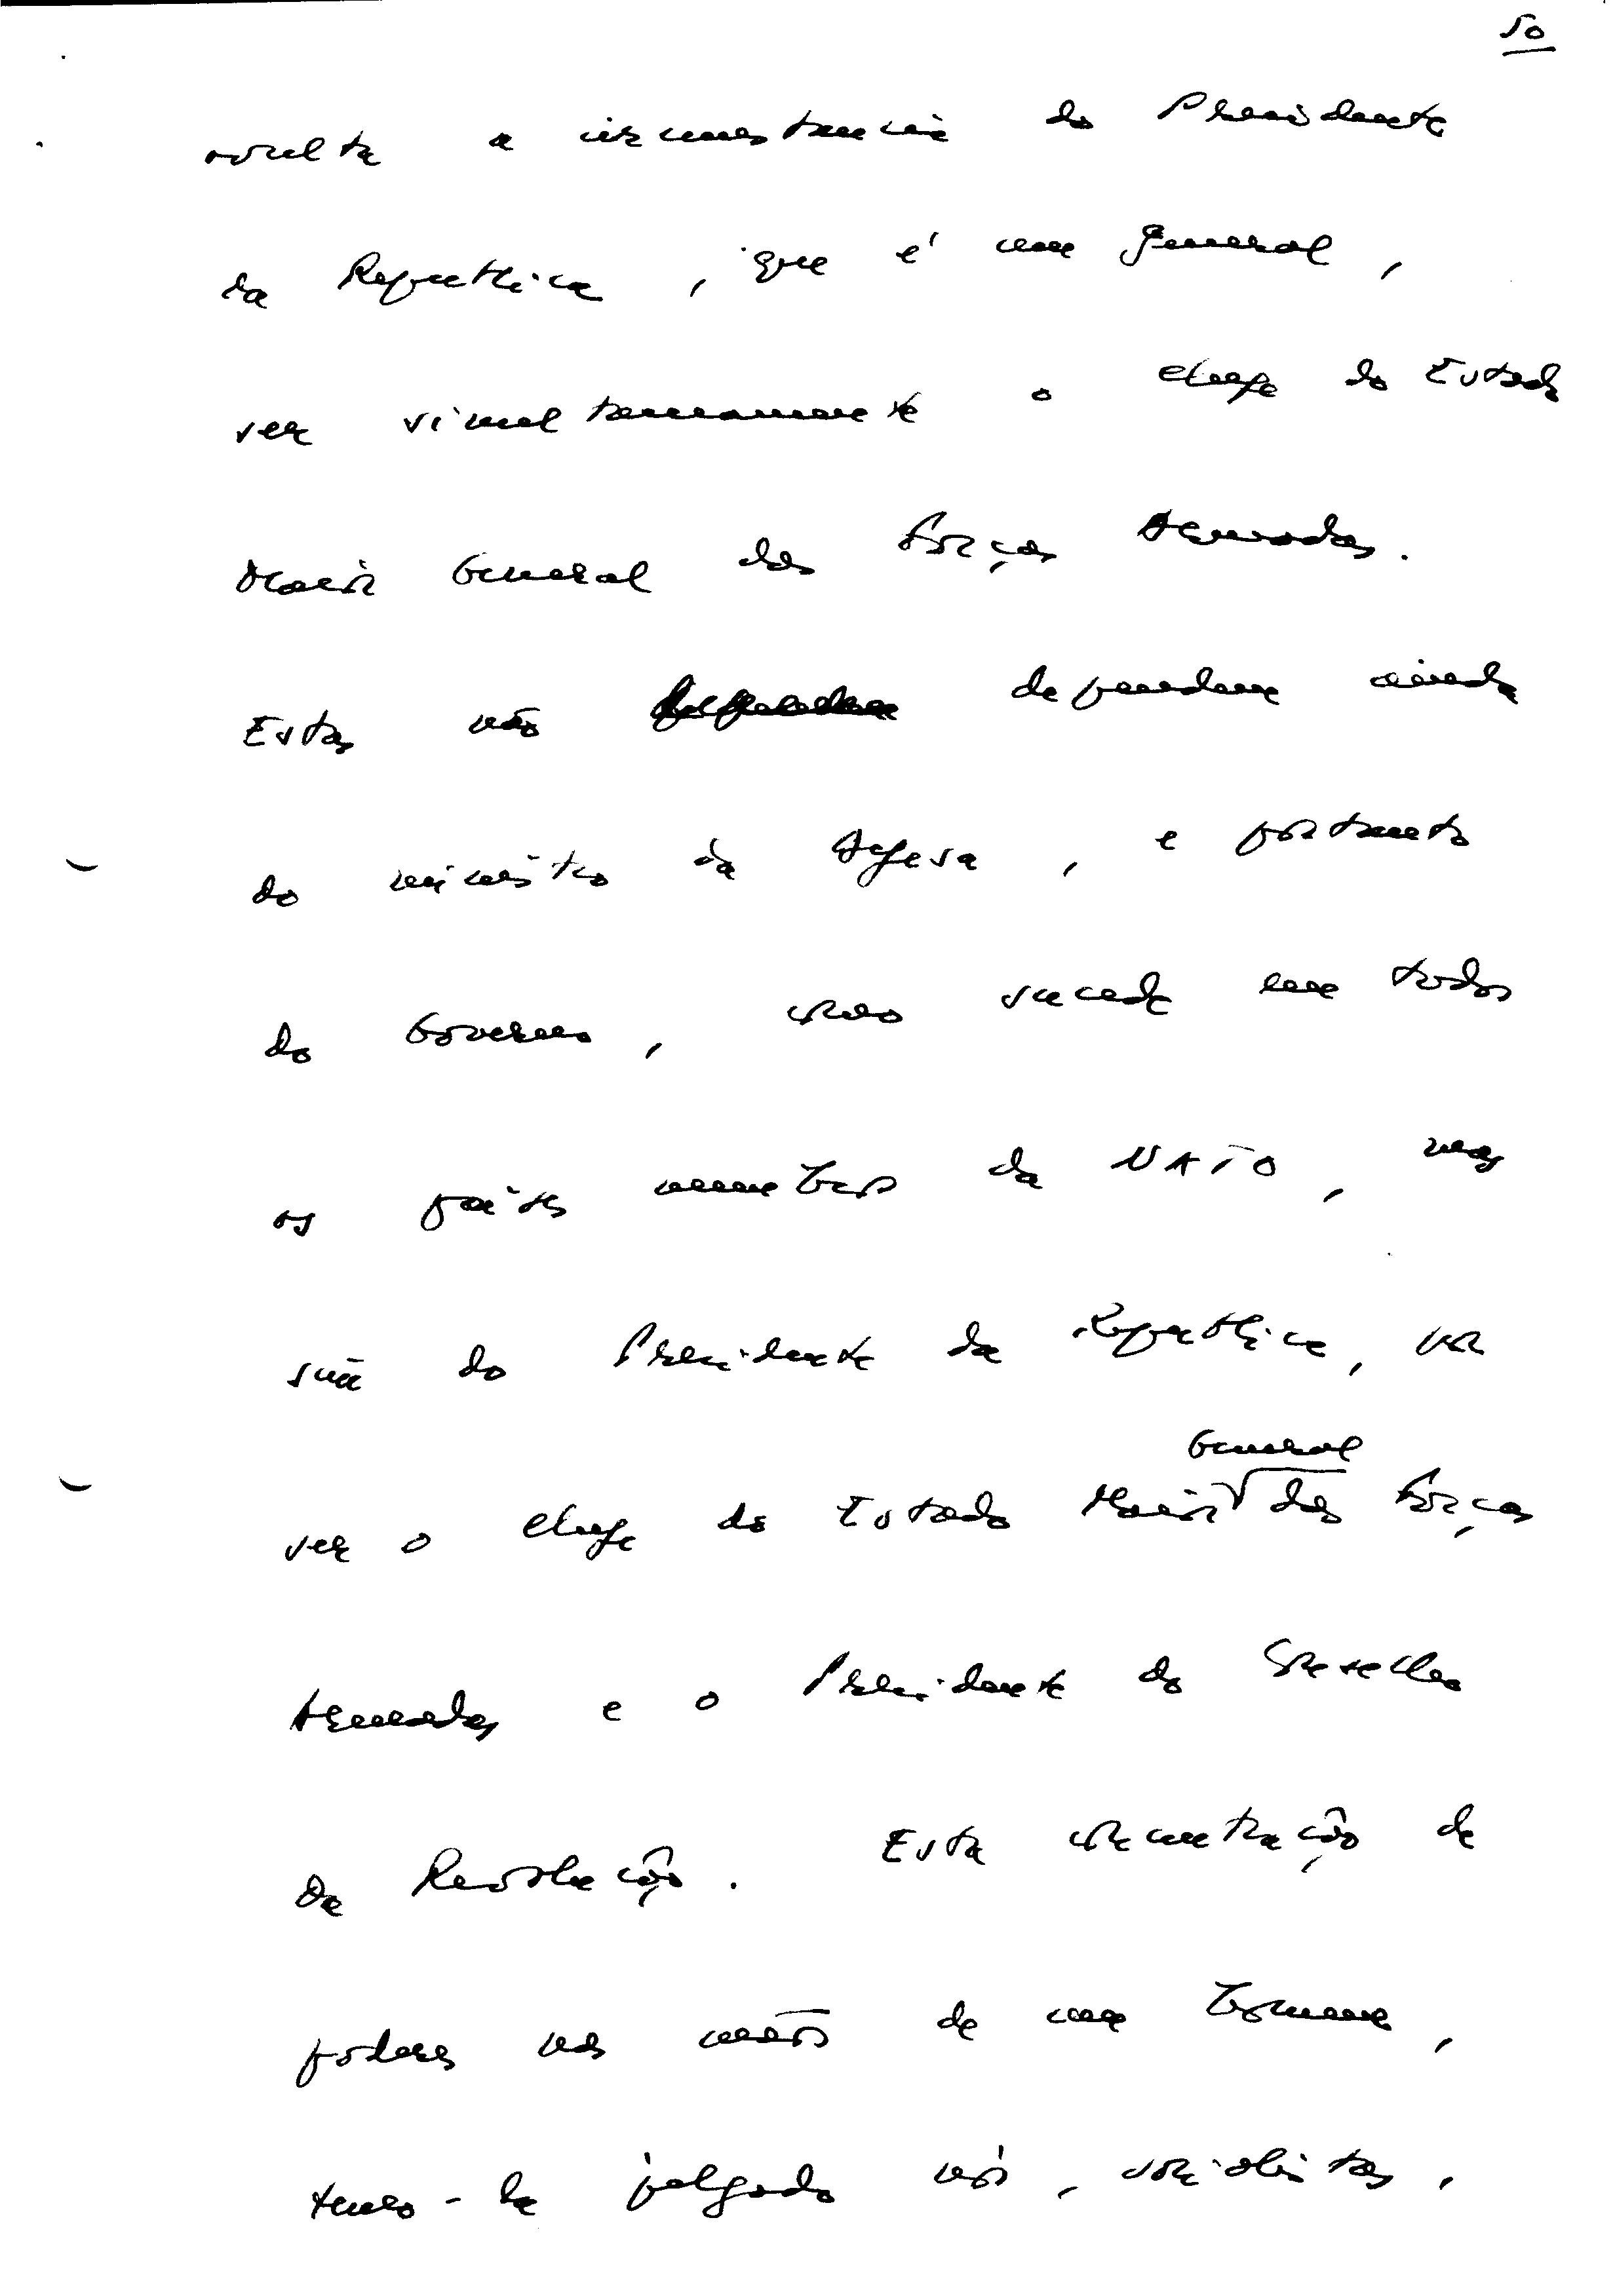 50
oculta a circunstancia do Presidente
da Republica, que é um general,
ser simultaneamente o chefe do Estado
Maior General das Forças Armadas.
Estas não dependem ainda
do ministro da Defesa, e portanto
do Governo, como sucede em todos
os países membros da NATO, mas
sim do Presidente da Republica, por
General
ser o chefe do Estado Maior das Forças
Armadas e o Presidente do Conselho
da Revolução. Esta concentração de
poderes nas mãos de um homem,
temo-la julgado nós, socialistas,